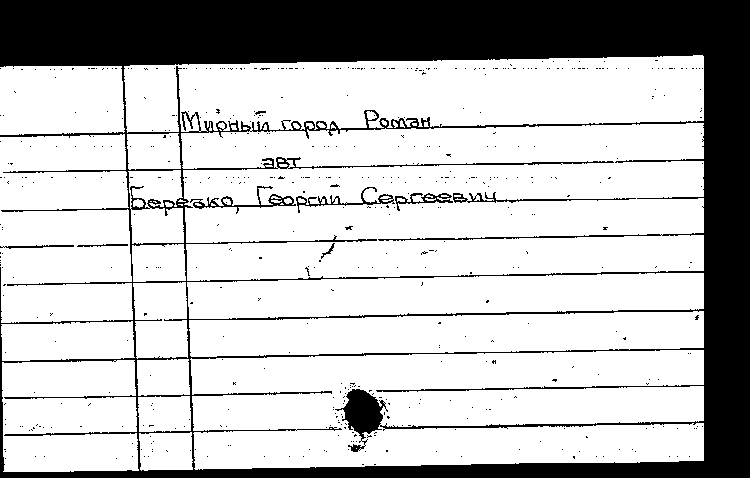 Мирный город. Роман.
авт
Березко, Георгий Сергеевич